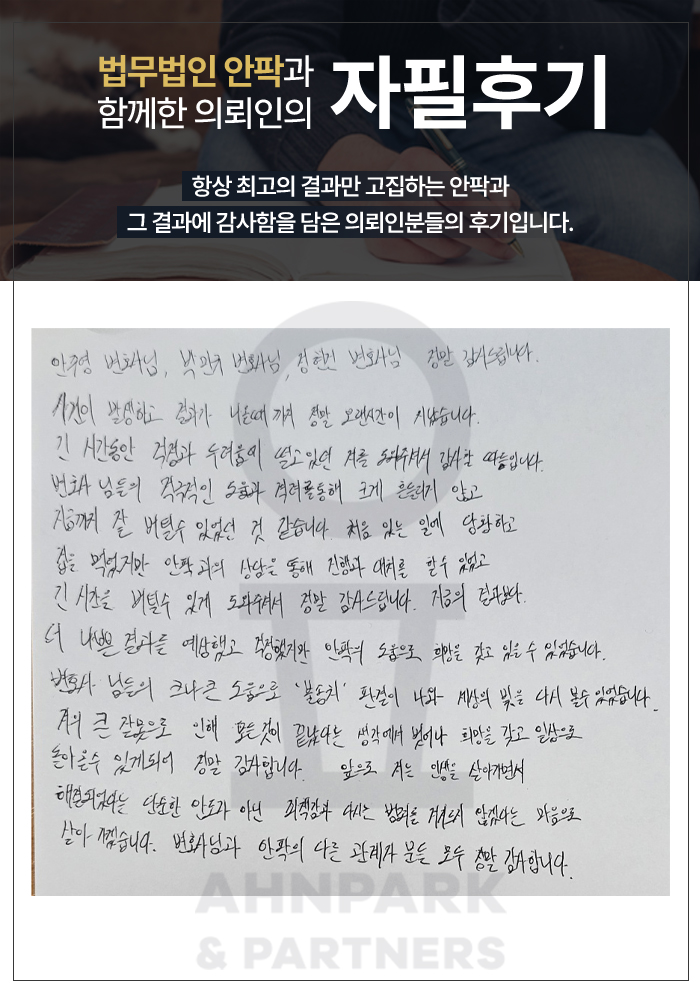 법무법인 안팍과
함께한 의뢰인의
자필후기
항상 최고의 결과만 고집하는 안팍과
그 결과에 감사함을 담은 의뢰인분들의 후기입니다.
안주영 변호사님, 박민규 변호사님, 정현민 변호사님 정말 감사드립니다.
사건이 발생하고 결과가 나올때 까지 정말 오랜시간이 지났습니다.
긴 시간동안 걱정과 두려움에 떨고있던 저를 도와주셔서 감사할 따름입니다.
변호사 님들의 적극적인 도움과 격려를통해 크게 흔들리지 않고
지금까지 잘 버틸수 있었던 것 같습니다. 처음 있는 일에 당황하고
겁을 먹었지만 안팍과의 상담을 통해 진행과 대처를 할수 있었고
긴 시간을 버틸수 있게 도와주셔서 정말 감사드립니다. 지금의 결과보다.
더 나쁜 결과를 예상했고 걱정했지만 안팍의 도움으로 희망을 갖고 있을 수 있었습니다.
변호사 님들의 크나큰 도움으로 '불송치' 판결이 나와 세상의 빛을 다시 볼수있었습니다.
저의 큰 잘못으로 인해 모든것이 끝났다는 생각에서 벗어나 희망을 갖고 일상으로
돌아올수 있게되어 정말 감사합니다. 앞으로 저는 인생을 살아가면서
해결되었다는 단순한 안도가 아닌 죄책감과 다시는 범죄를 저지르지 않겠다는 마음으로
살아 가겠습니다. 변호사님과 안팍의 다른 관계자 분들 모두 정말 감사합니다.
AHNPARK
& PARTNERS